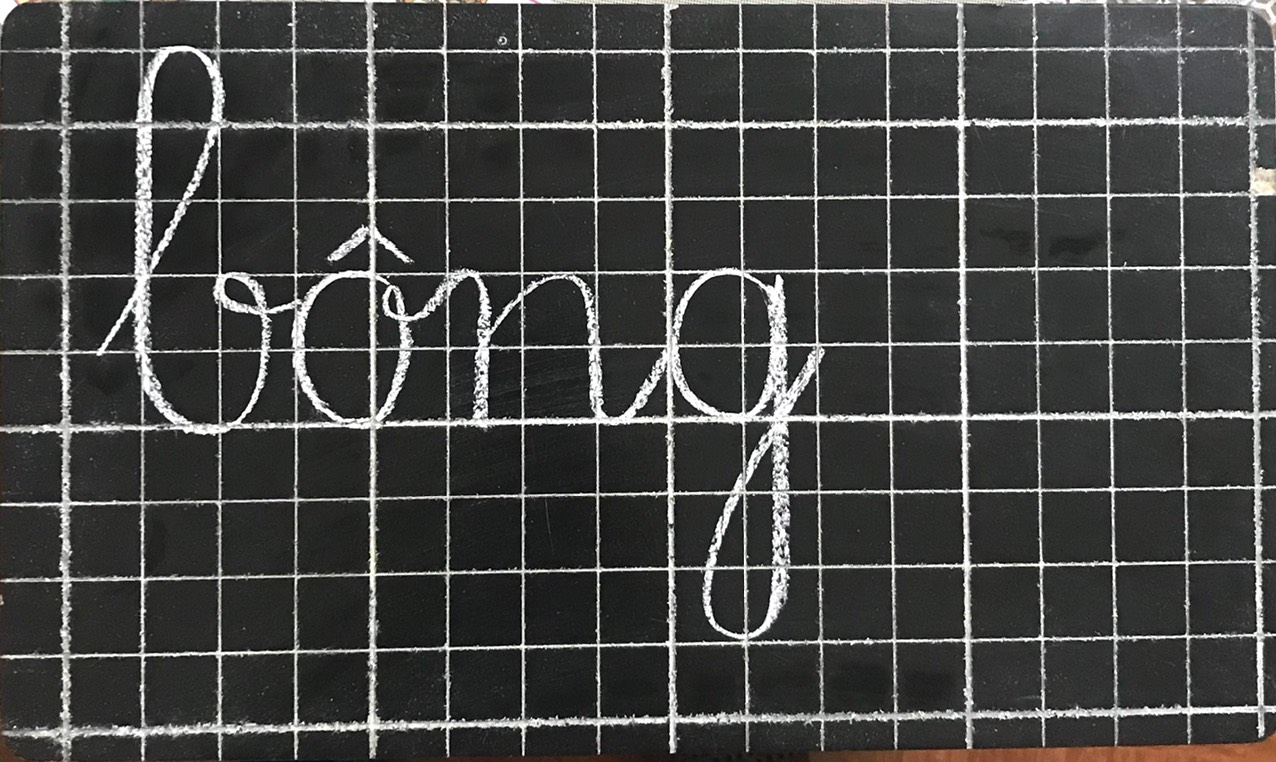 bông